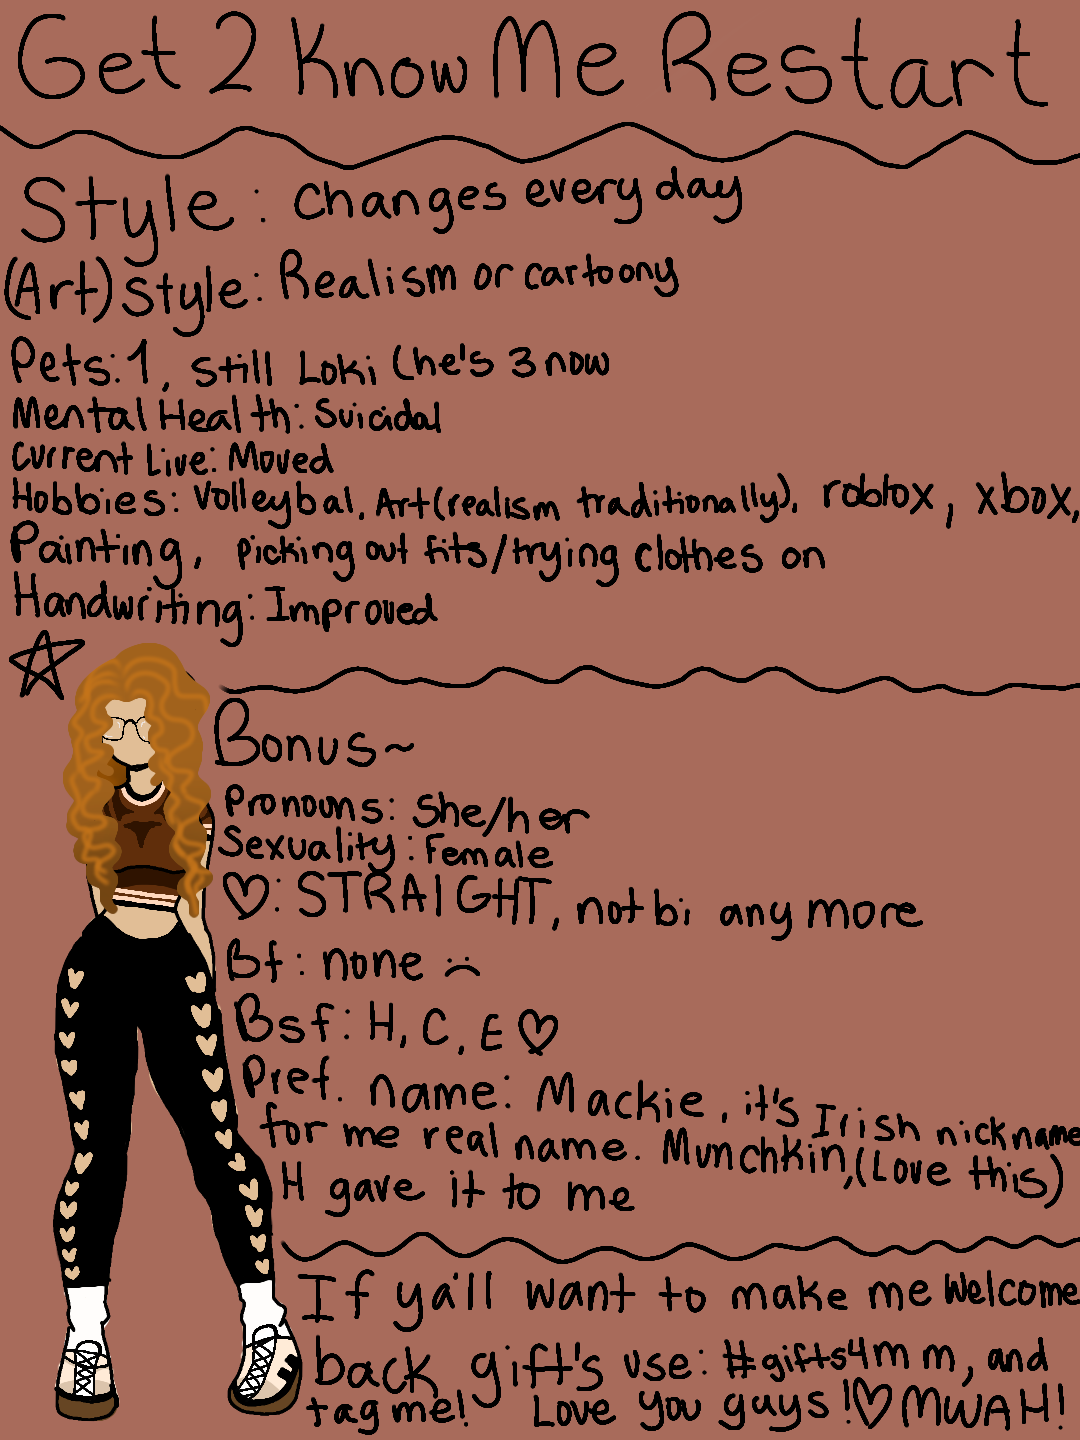 Get 2 Know Me Restart
Style: Changes every day
(Art) Style: Realism or cartoony
Pets: 1, still Loki (he's 3 now
Mental Health: Suicidal
Current Live: Moved
Hobbies: Volleybal, Art(realism traditionally), roblox, xbox,
Painting, picking out fits/trying clothes on
Handwriting: Improved
Bonus~
Pronouns: She/her
Sexuality: Female
♡: STRAIGHT, not bi any more
Bf: none :(
Bsf: H, C, E ♡
Pref. name: Mackie, it's Irish nickname
for me real name. Munchkin, (Love this)
H gave it to me
If ya'll want to make me Welcome
back gift's use: #gifts4mm, and
tag me! Love you guys! ♡ MWAH!